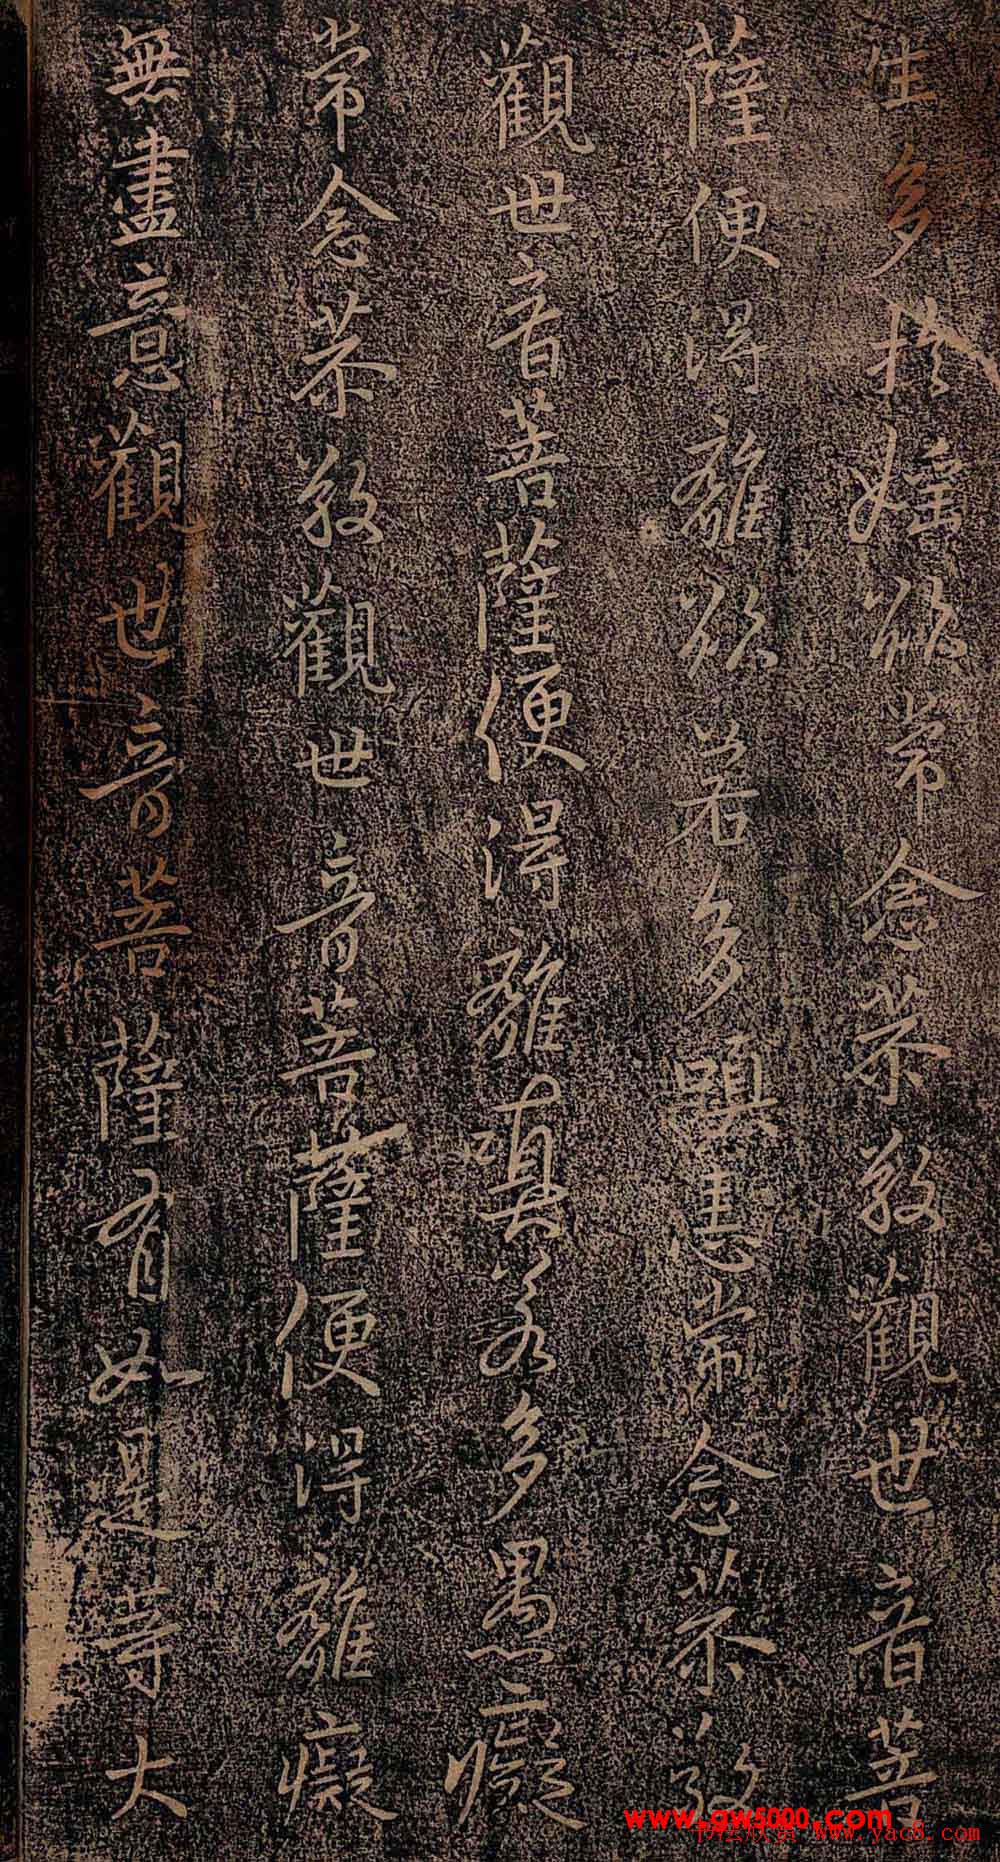 生多於婬欲常念恭敬觀世音菩
薩便得離欲若多瞋恚常念恭敬
觀世音菩薩便得離嗔若多愚癡
常念恭敬觀世音菩薩便得離癡
無盡意觀世音菩薩有如是等大
www.gw5000.com
书法欣赏 www.yac8.com